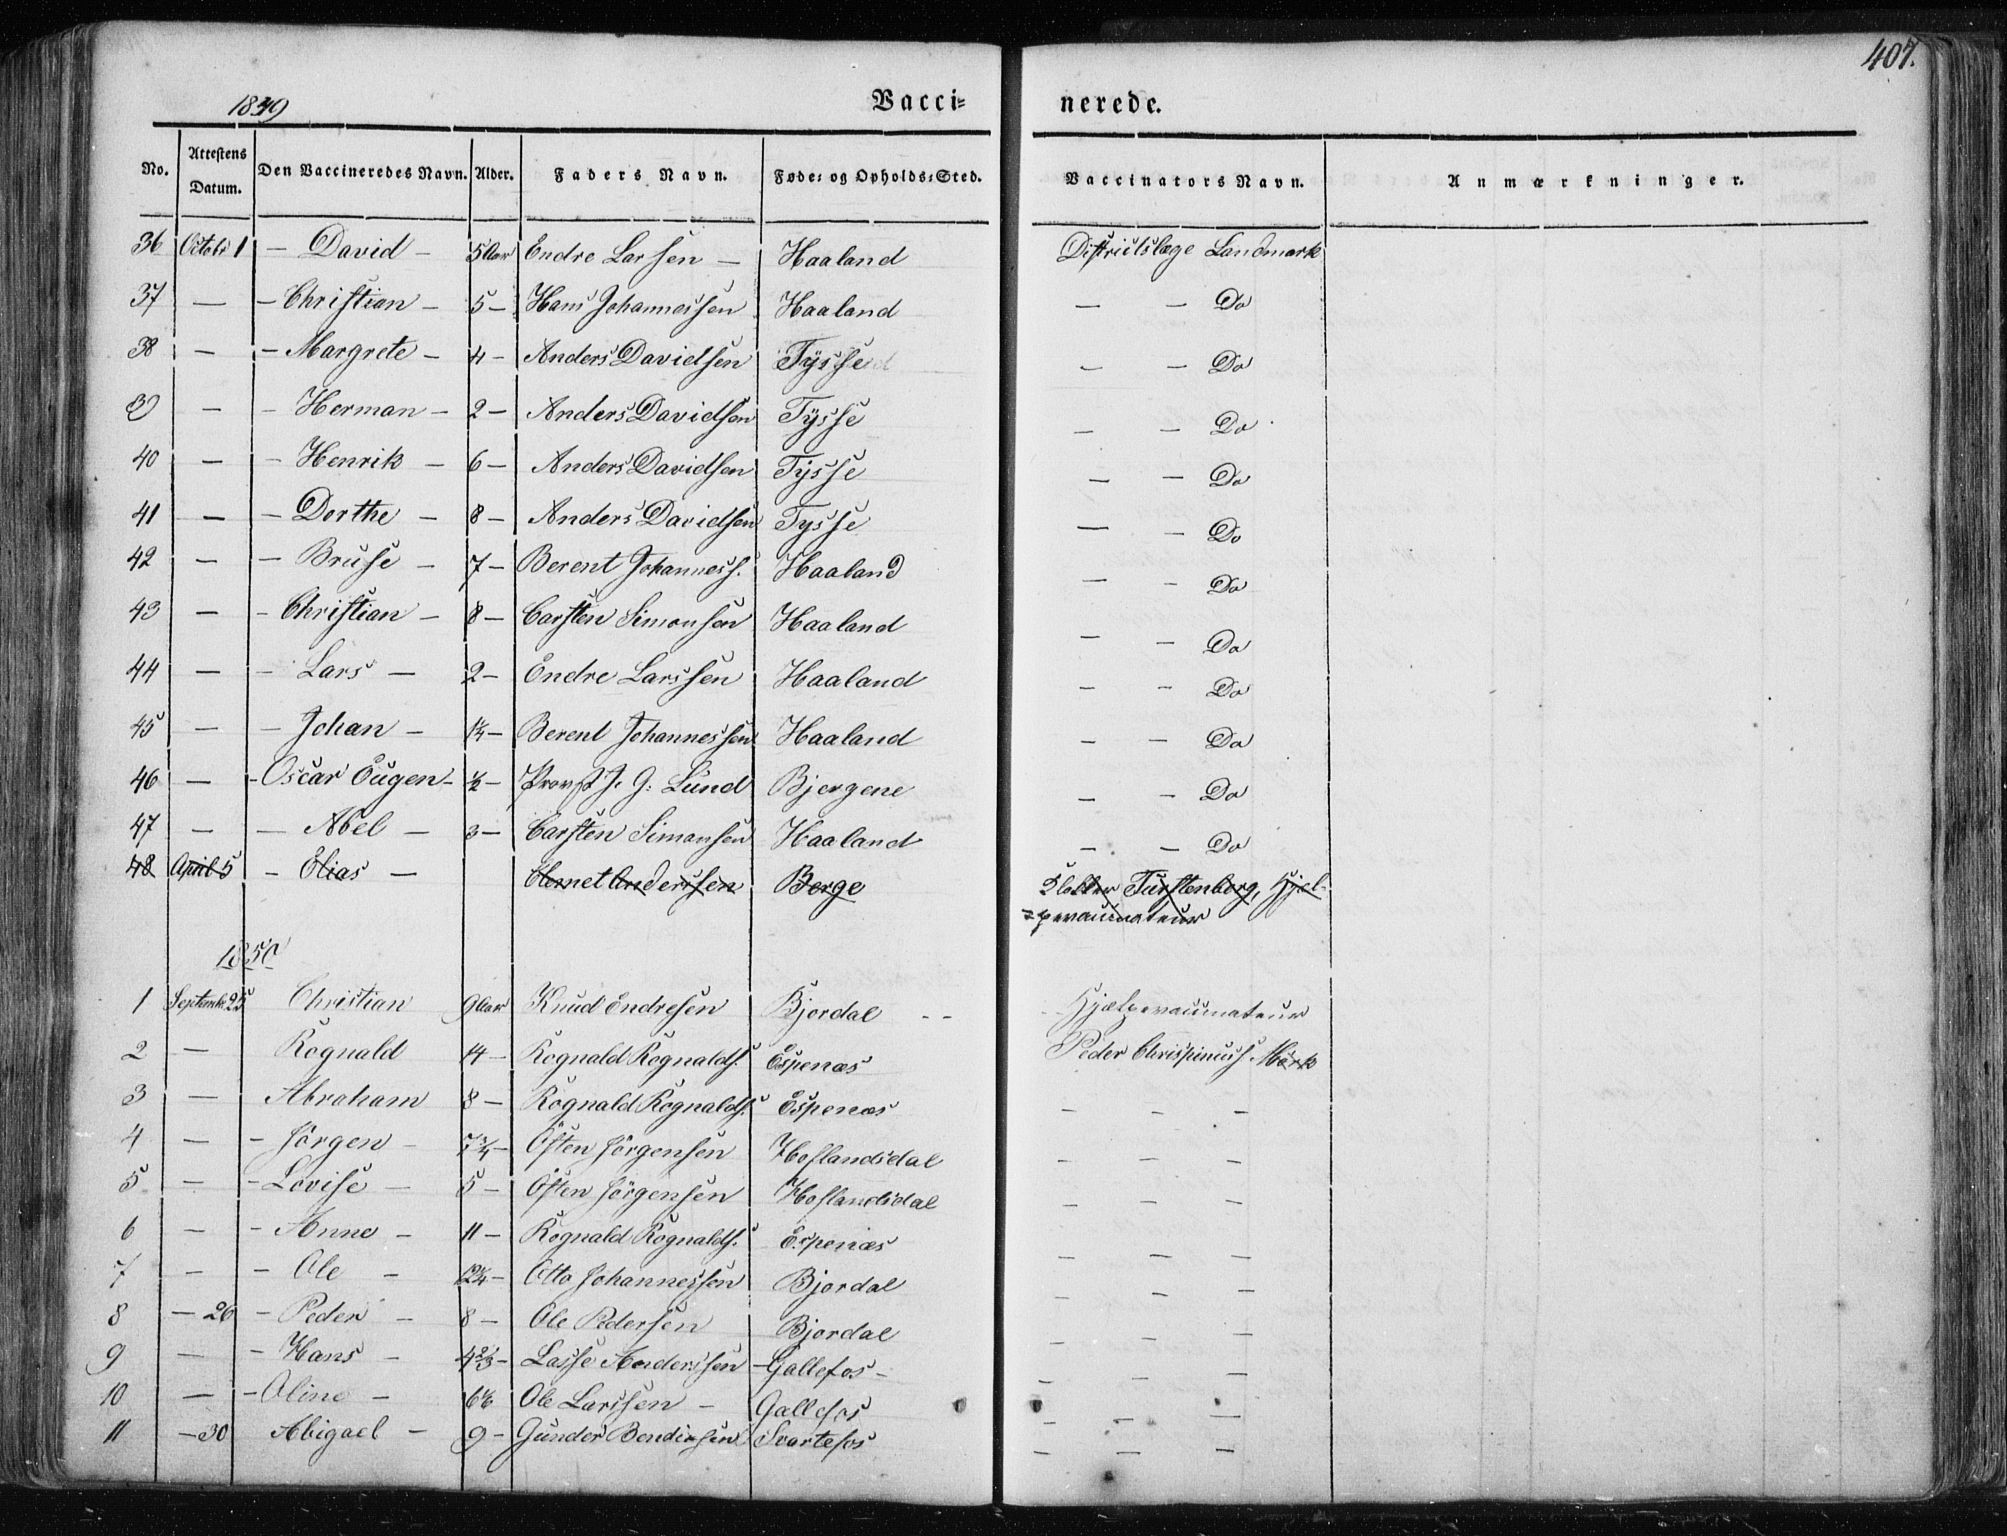 407.
1849
Vacci= nerede.
No. Attestens Datum. Den Vaccineredes Navn. Alder. Faders Navn. Føde= og Opholds=Sted. Vaccinators Navn. Anmærkninger.
36 Octobr 1 – David – 5 Aar Endre Larsen – Haaland Districtslæge Landmark
37 — – Christian – 5 – Hans Johannessen Haaland — – Do
38 – – Margrete – 4 – Anders Davidsen Tysse – – Do
39 – – Herman – 2 – Anders Davidsen Tysse – – Do
40 – – Henrik – 6 – Anders Davidsen Tysse – – Do
41 – – Dorthe – 8 – Anders Davidsen Tysse — – Do
42 – – Bruse – 7 – Berent Johanness. Haaland – – Do
43 – – Christian – 8 – Carsten Simonsen Haaland – – Do
44 – – Lars – 2 – Endre Larssen Haaland – – Do
45 – – Johan – 1¼ – Berent Johannessen Haaland – – Do
46 – – Oscar Eugen – ½ – Provst J. G. Lund Bjergene – – Do
47 – – Abel – 3 – Carsten Simonsen Haaland – – Do
48 April 5 – Elias – Clemet Anderssen Berge Klokker Fürstenberg, Hjel-
=pevaccinateur
1850
1 Septembr 25 Christian 9 Aar Knud Endresen Bjordal - - Hjælpevaccinateur
2 — Rognald 14 – Rognald Rognalds. Espenæs Peder Chrispinuss. Mörk
3 — Abraham 8 – Rognald Rognalds. Espenæs – – –
4 — – Jörgen – 7¾ – Östen Jörgensen Hoflandsdal – – –
5 – – Lovise – 5 – Östen Jörgensen Hoflandsdal – – –
6 – – Anne – 11 – Rognald Rognalds. Espenæs – – –
7 – – Ole – 12¼ – Otto Johannessen Bjordal – – –
8 – 26 – Peder – 8 – Ole Pedersen Bjordal – – –
9 – – Hans – 4⅔ – Lasse Anderssen – Gallefos – – – –
10 — – Oline – 6½ Ole Larssen – Gallefos – – –
11 – 30 Abigael – 9 – Gunder Bendixsen Svartefos – – –